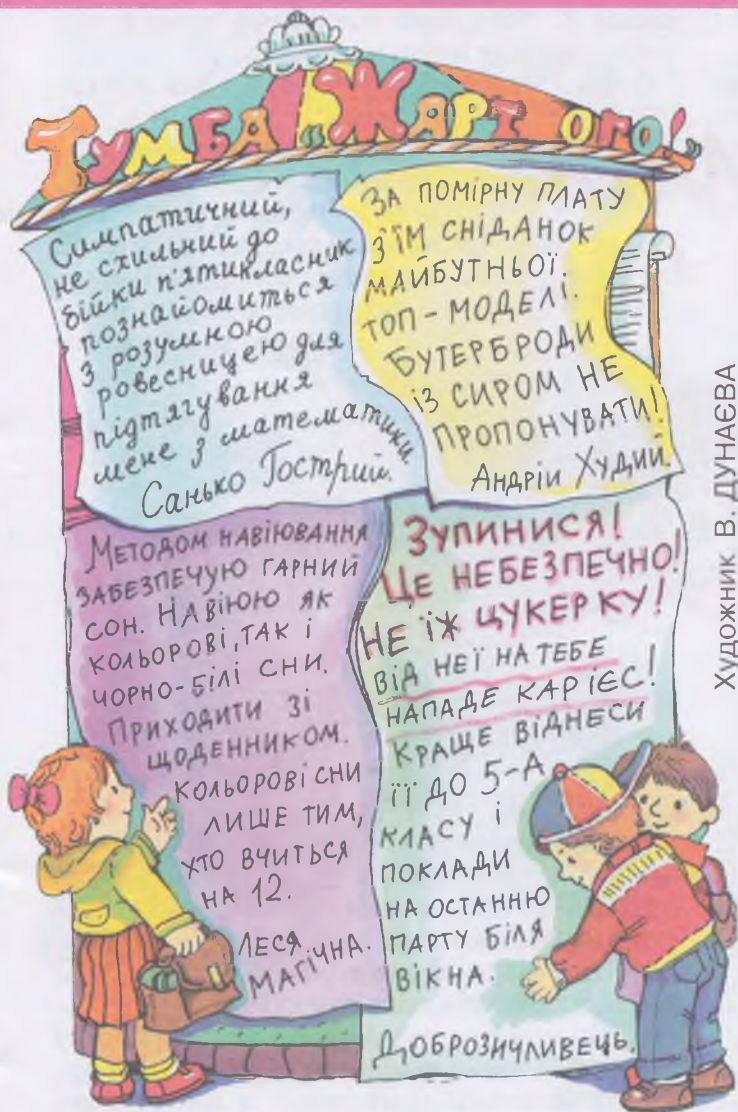 Тумба „Жарт ого!"
Симпатичний,
не схильний до
бійки п'ятикласник
познайомиться
з розумною
ровесницею для
підтягування
мене з математики
Санько Гострий.
За помірну плату
з'їм сніданок
майбутньої.
топ-моделі.
Бутерброди
із сиром не
пропонувати!
Андрій Худий.
Методом навіювання
забезпечую гарний
сон. Навіюю як
кольорові, так і
чорно-білі сни.
Приходити зі
щоденником.
Кольорові сни
лише тим,
хто вчиться
на 12.
Леся
Магічна.
Зупинися!
Це небезпечно!
Не їж цукерку!
Від неї на тебе
нападе карієс!
Краще віднеси
її до 5-А
класу і
поклади
на останню
парту біля
вікна.
Доброзичливець.
Художник В. ДУНАЄВА